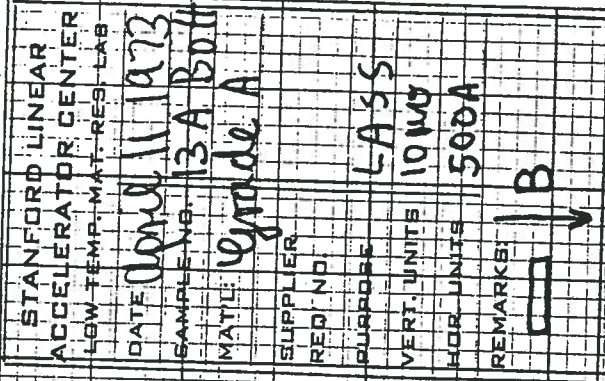 STANFORD LINEAR
ACCELERATOR CENTER
LOW TEMP. MAT. RES. LAB
DATE April 11 1973
SAMPLE NO. 13 A Bott
MAT'L. Grade A
SUPPLIER
REQ NO.
PURPOSE LASS
VERT. UNITS 10 μv
HOR. UNITS 500A
REMARKS:
B